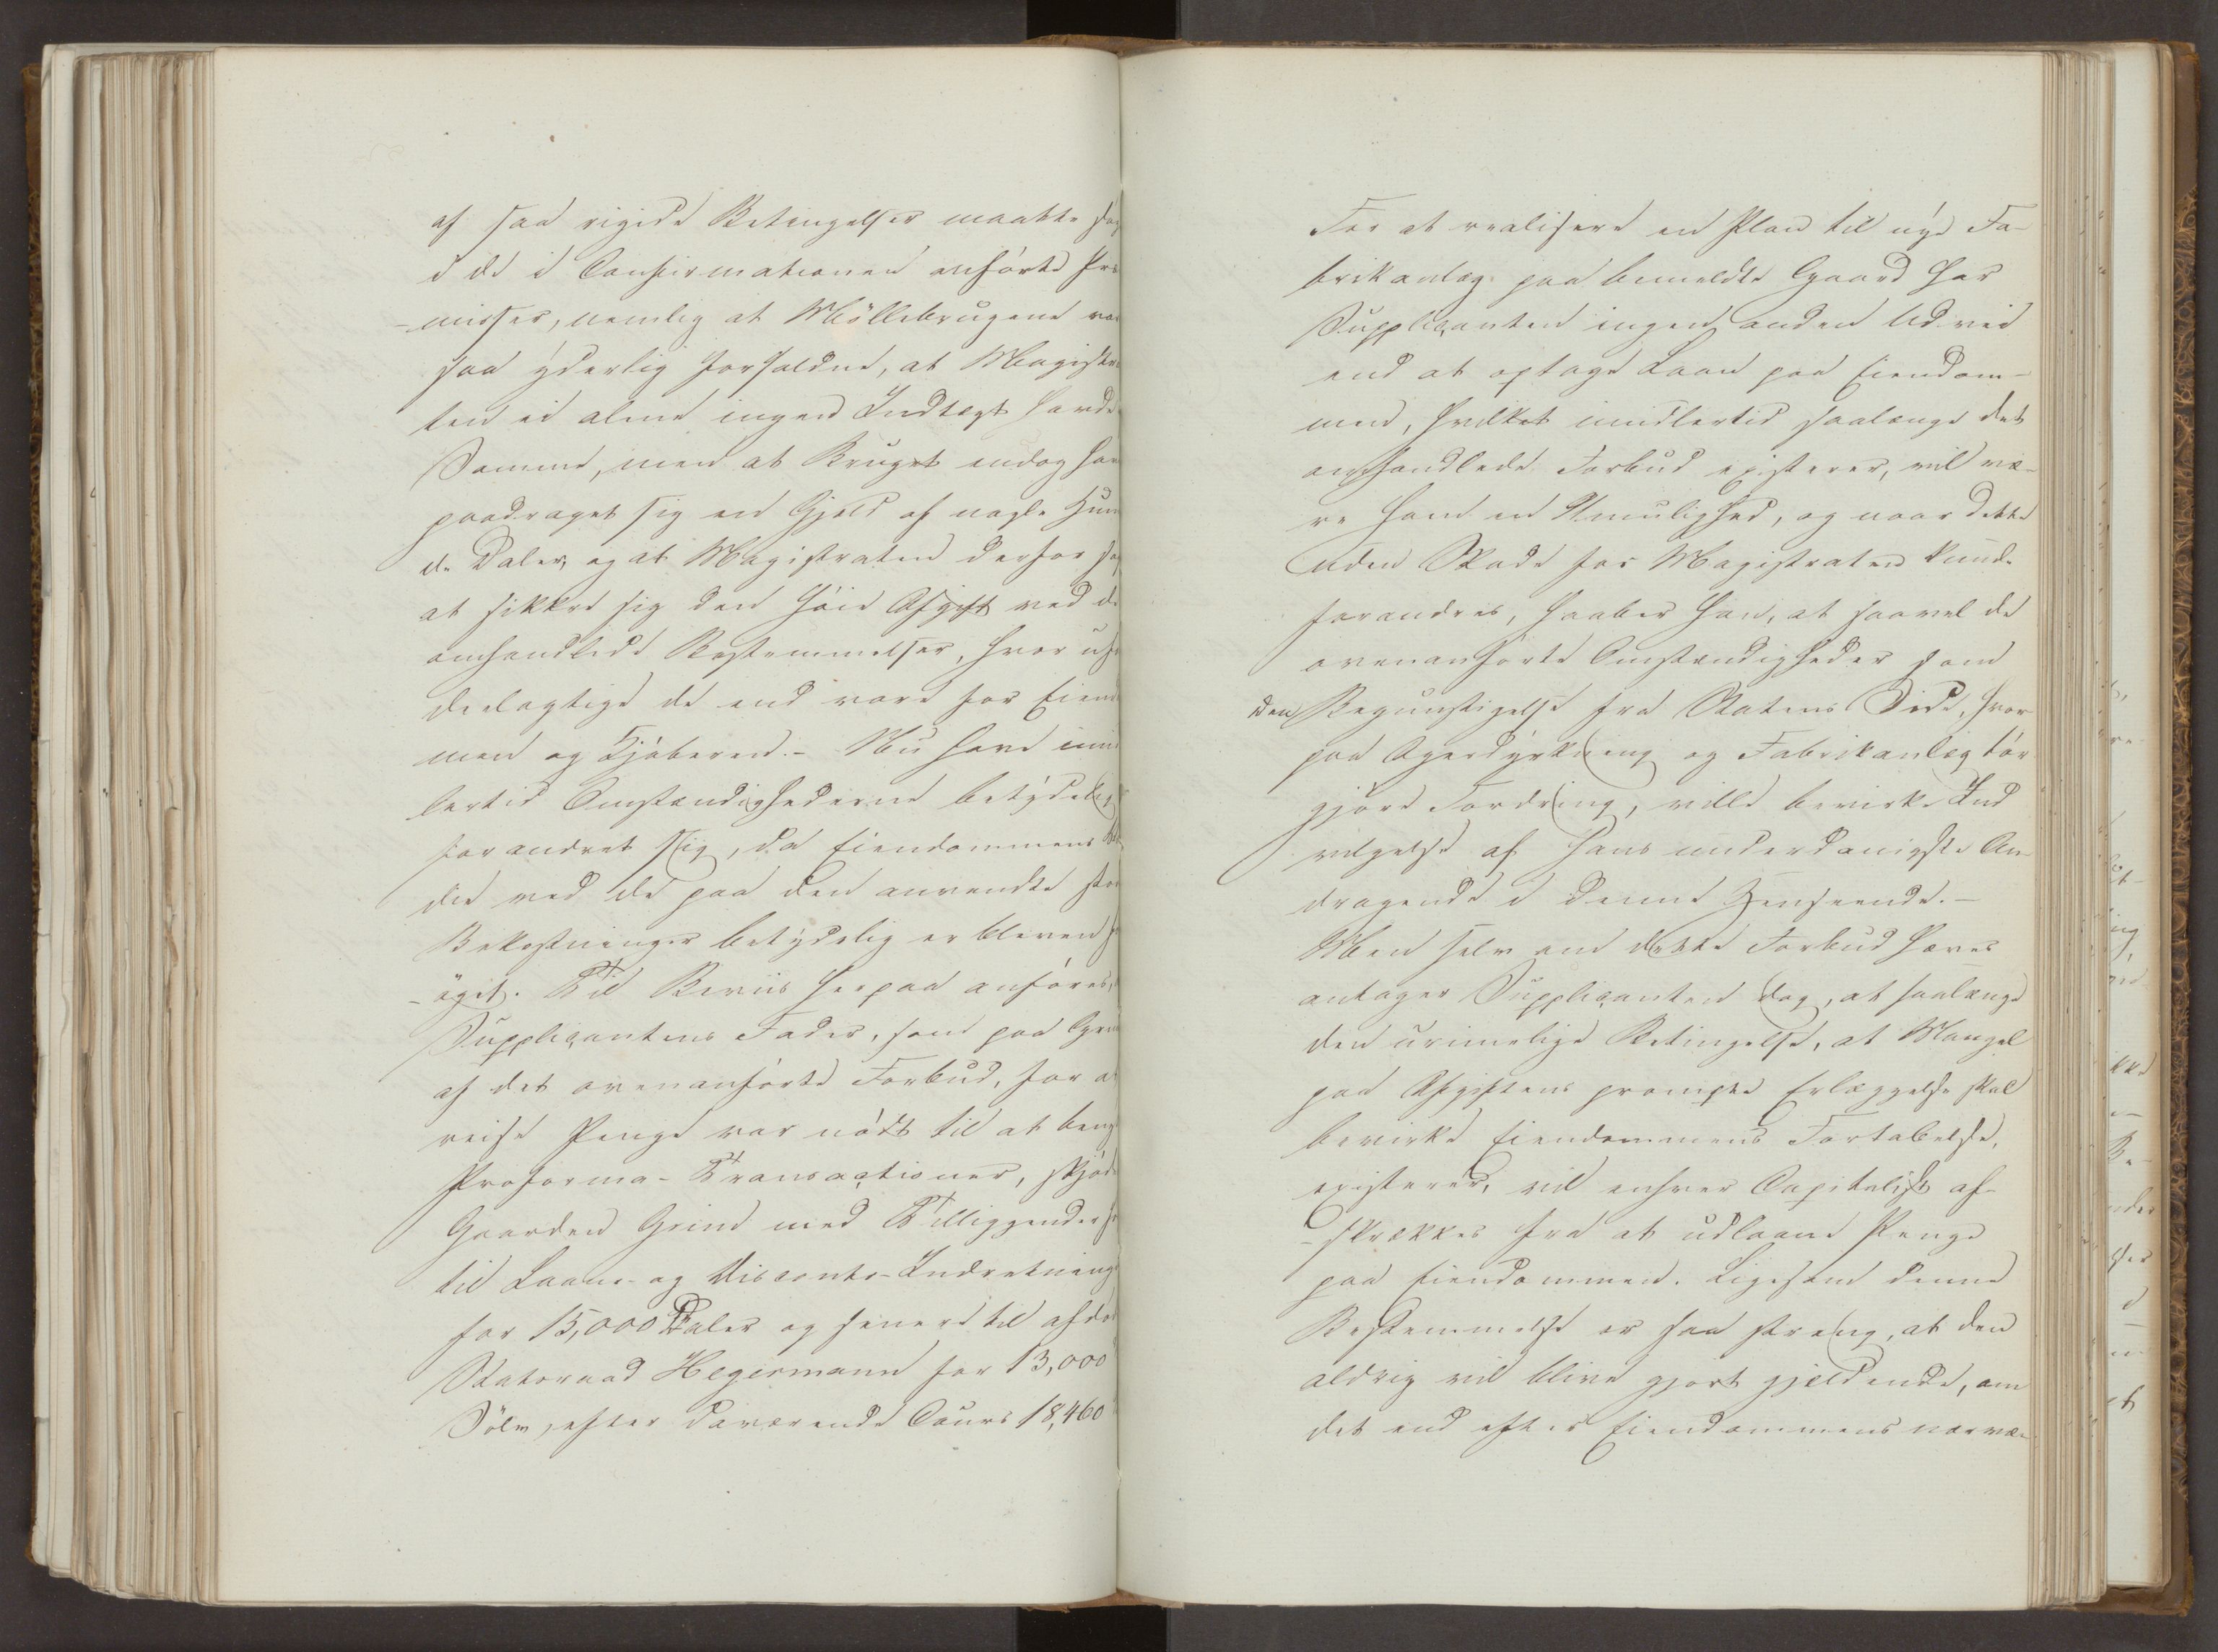 af saa rigide Betingelser maatte søg
i de i Confirmationen anførte Præ
-misser, nemlig at Møllebrugene var
saa yderlig forfaldne, at Magistra
ten ei alene ingen Indtægt havde
Samme, men at Bruget endog hav
paadraget sig en Gjeld af nogle Hun
de Daler, og at Magistraten derfor søg
at sikkre sig den høie Afgift ved de
omhandlede Bestemmelser, hvor ufor
deelagtige de end vare for Eiend
men og Kjøberen. - Nu have imid
lertid Omstændighederne betydelig
forandret sig, da Eiendommens Vær
die ved de paa den anvendte store
Bekostninger betydelig er bleven for
-øget. Til Beviis herpaa anføres,
Supplicantens Fader, som paa Grund
af det ovenanførte Forbud, for at
reise Penge var nødt til at beny
Proforma-Transactioner, skjød
Gaarden Grini med Tilliggender
til Laane- og Disconto-Indretning
for 15,000 Daler og senere til afdøde
Statsraad Hegermann for 13,000
Sølv, efter daværende Cours 18,460
For at realisere en Plan til nye Fa-
brikanlæg paa bemeldte Gaard har
Supplicanten ingen anden Udvei
end at optage Laan paa Eiendom-
men, hvilket imidlertid saalænge det
omhandlede Forbud existerer, vil væ-
re ham en Umulighed, og naar dette
uden Skade for Magistraten kunde
forandres, haaber han, at saavel de
ovenanførte Omstændigheder som
den Begunstigelse fra Statens Side, hvor
paa Agerdyrkning og Fabrikanlæg tør
gjøre Fordring, ville bevirke Ind
vilgelse af hans underdanigste An-
dragende i denne Henseende. -
Men selv om dette Forbud hæves
antager Supplicanten dog, at saalænge
den urimelige Betingelse, at Mangel
paa Afgiftens prompte Erlæggelse skal
bevirke Eiendommens Fortabelse,
existerer, vil enhver Capitalist af-
-skrækkes fra at udlaane Penge
paa Eiendommen. Ligesom denne
Bestemmelse er saa streng, at den
aldrig vil blive gjort gjeldende, om
det end efter Eiendommens nærvæ-